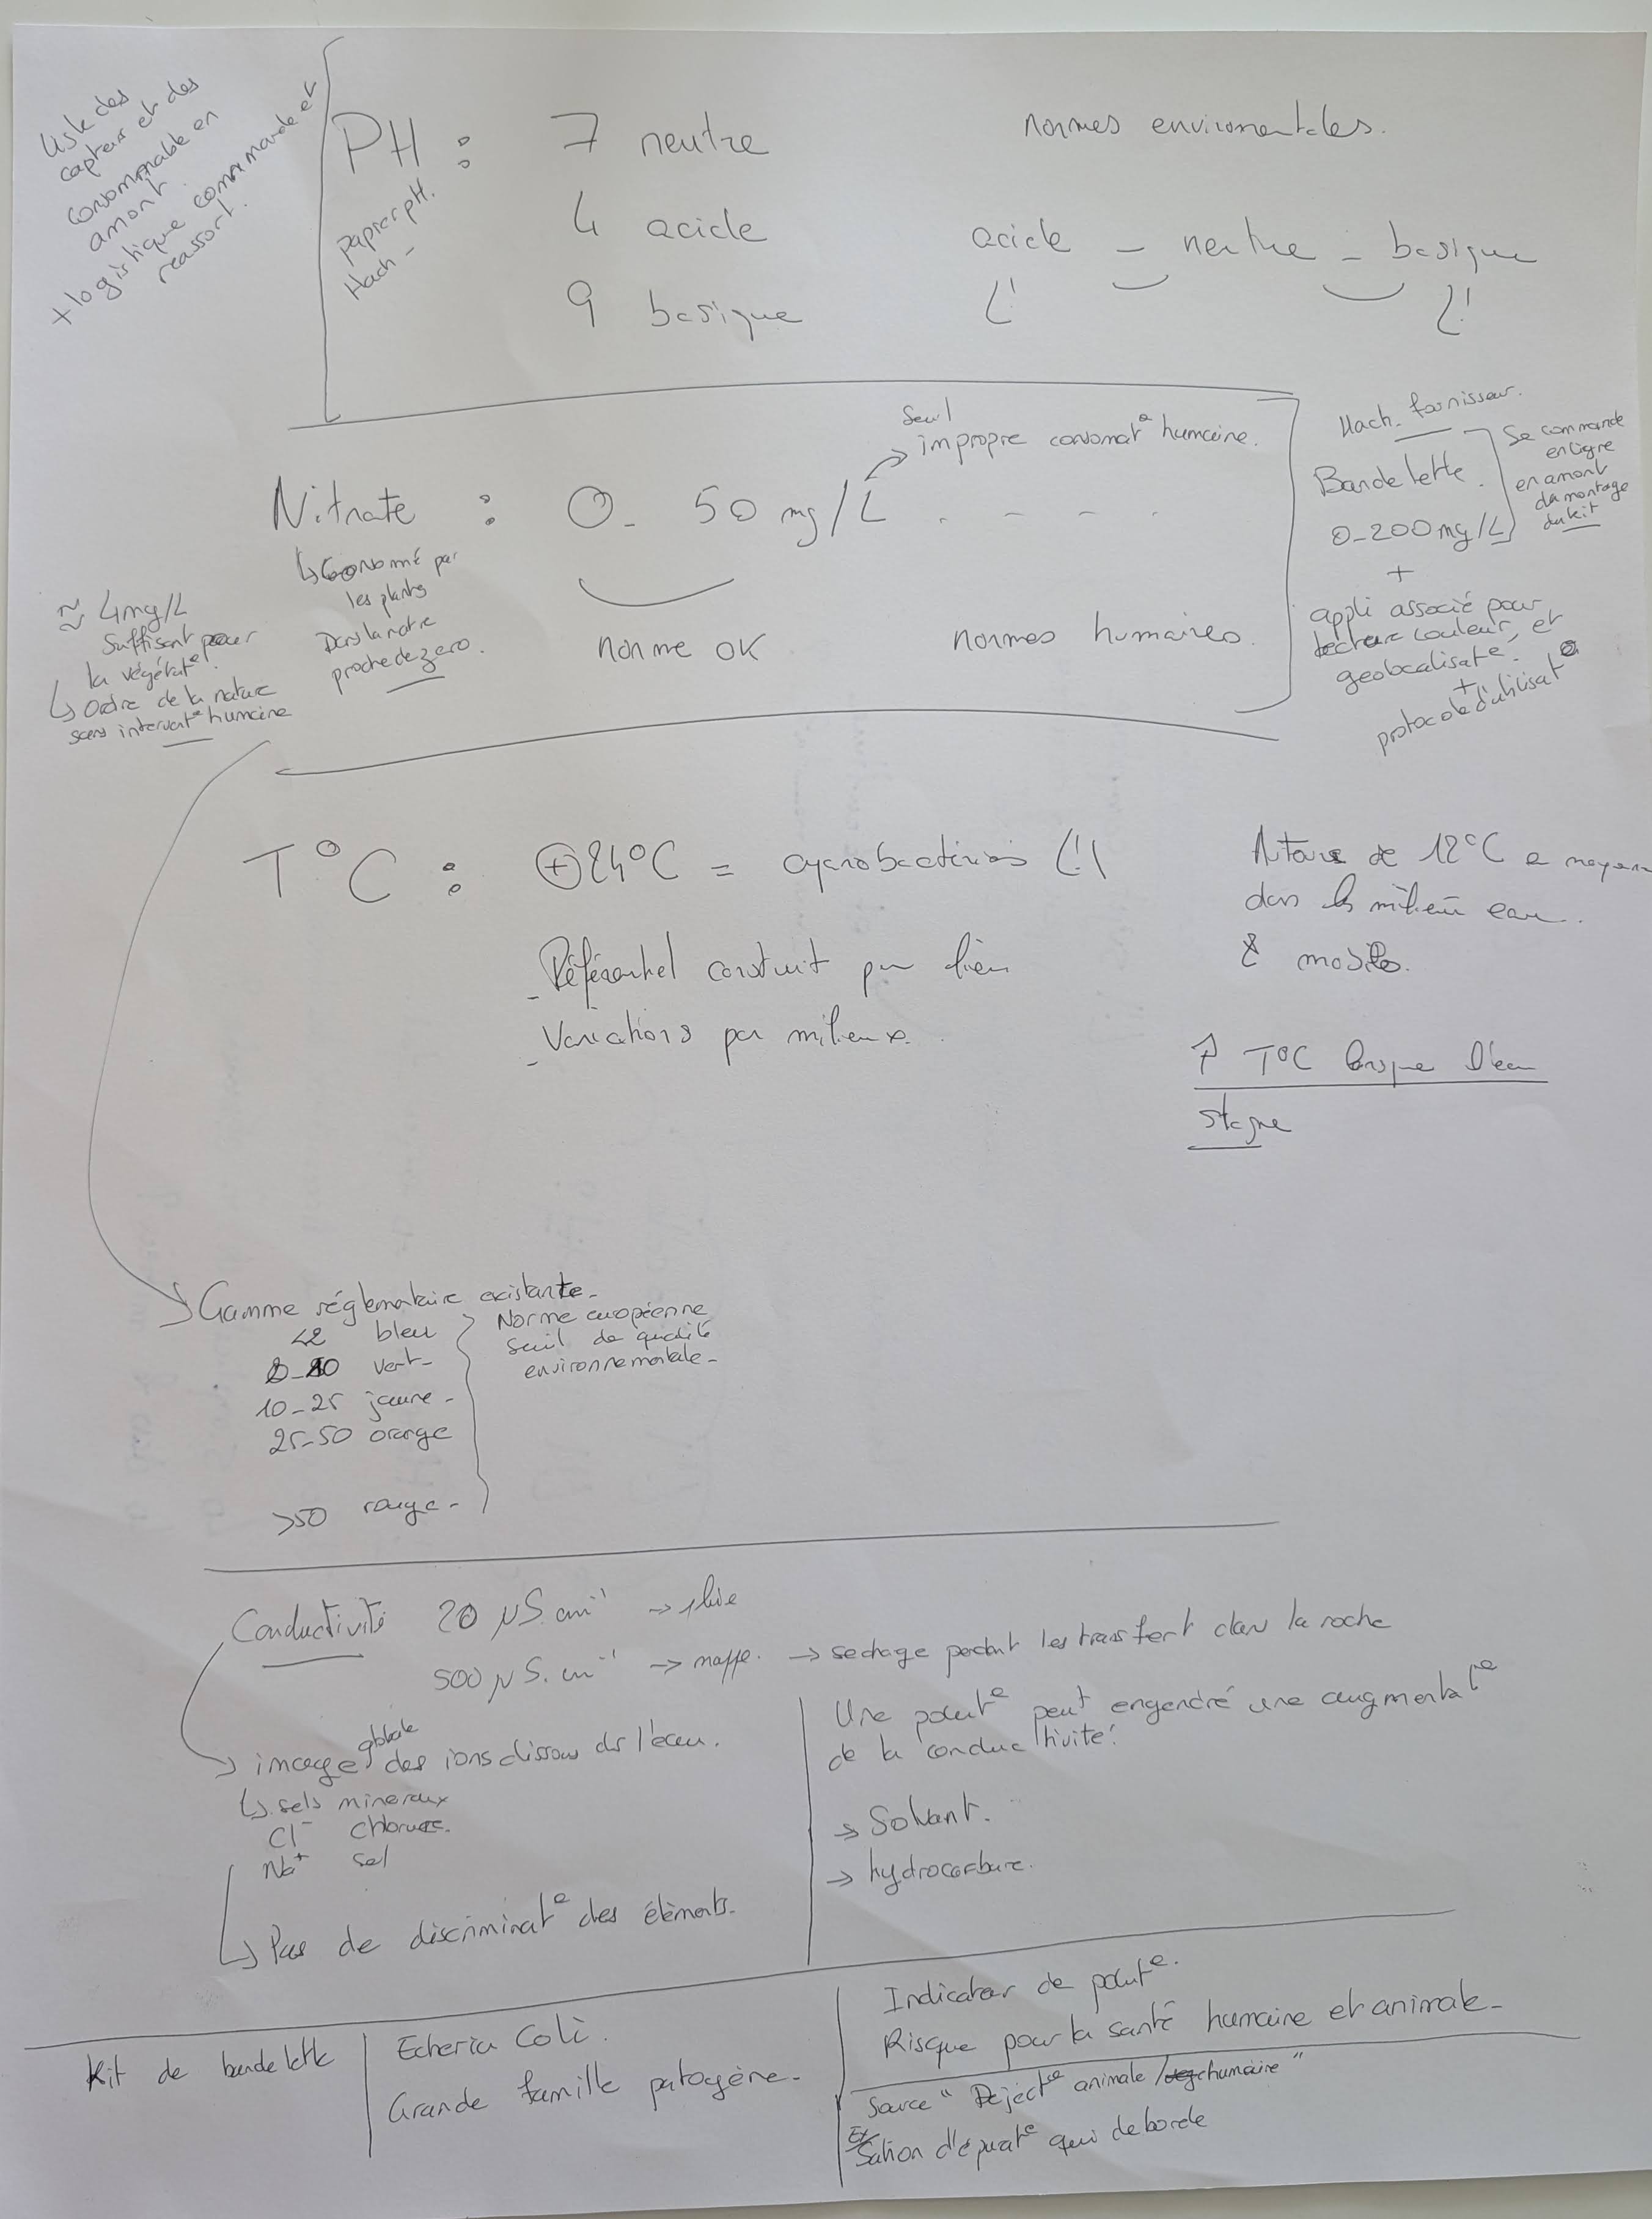 Liste des
capteur et des
consommable en
amont.
+ logistique commande et
reassort.
PH :
papier pH.
Hach -
7 neutre
4 acide
9 basique
normes enviromentales.
acide - neutre - basique
Nitrate : 0 - 50 mg/L . - - - .
Seuil
impropre consomat° humaine.
↳ Consommé par
les plantes
Dans la notre
proche de zero.
norme OK
normes humaines.
≈ 4mg/L
Suffisant pour
la végétat°
↳ ordre de la nature
sans intervent° humaine
Hach - fournisseur.
Bandelette.
0-200 mg/L
Se commande
en ligne
en amont
du montage
du kit
+
appli associé pour
lecture couleur, et
geolocalisat°.
+
protocole d'utilisat°
T°C : ⊕ 24°C = cyanobactéries (!)
- Référentiel construit par lieu
- Variations par milieux.
Autour de 12°C en moyenne
dans les milieux eau..
mobiles.
↗ T°C lorsque l'eau
stagne
→ Gamme réglementaire existante -
<2 bleu
2-10 vert -
10-25 jaune -
25-50 orange
>50 rouge -
Norme européenne
seuil de qualité
environnementale -
Conductivité 20 µS.cm⁻¹ → pluie
500 µS.cm⁻¹ → nappe. → sechage pendant les transfert dans la roche
→ image globale des ions dissous ds l'eau.
↳ sels mineraux
Cl⁻ Chlorures.
Na⁺ sel
↳ Pas de discriminat° des éléments.
Une polut° peut engendré une augmentat°
de la conductivité!
→ Solvant.
→ hydrocarbure.
Kit de bandelette
Echeria Coli.
Grande famille patogène.
Indicateur de polut°.
Risque pour la santé humaine et animale -
Source " Deject° animale / humaine "
Ex
Sation d'épurat° qui deborde